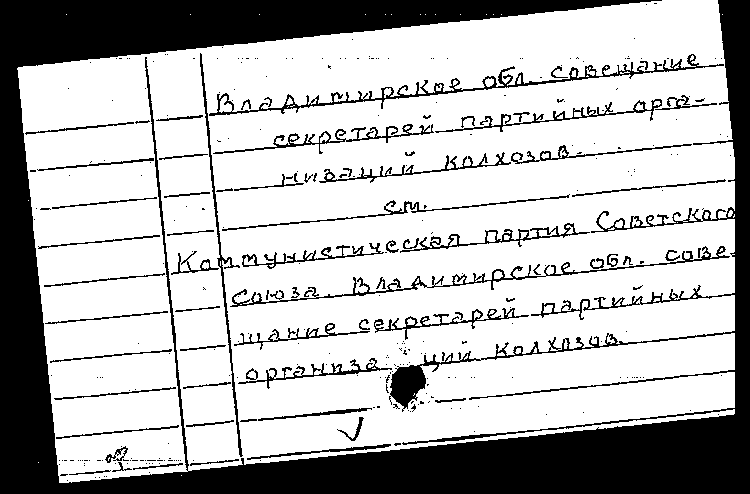 Владимирское обл. совещание
секретарей партийных орга-
низаций колхозов.
см.
Коммунистическая партия Советского
Союза. Владимирское обл. сове-
щание секретарей партийных
организаций колхозов.